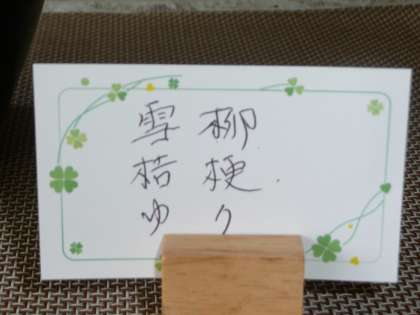 雪柳
桔梗
ゆり